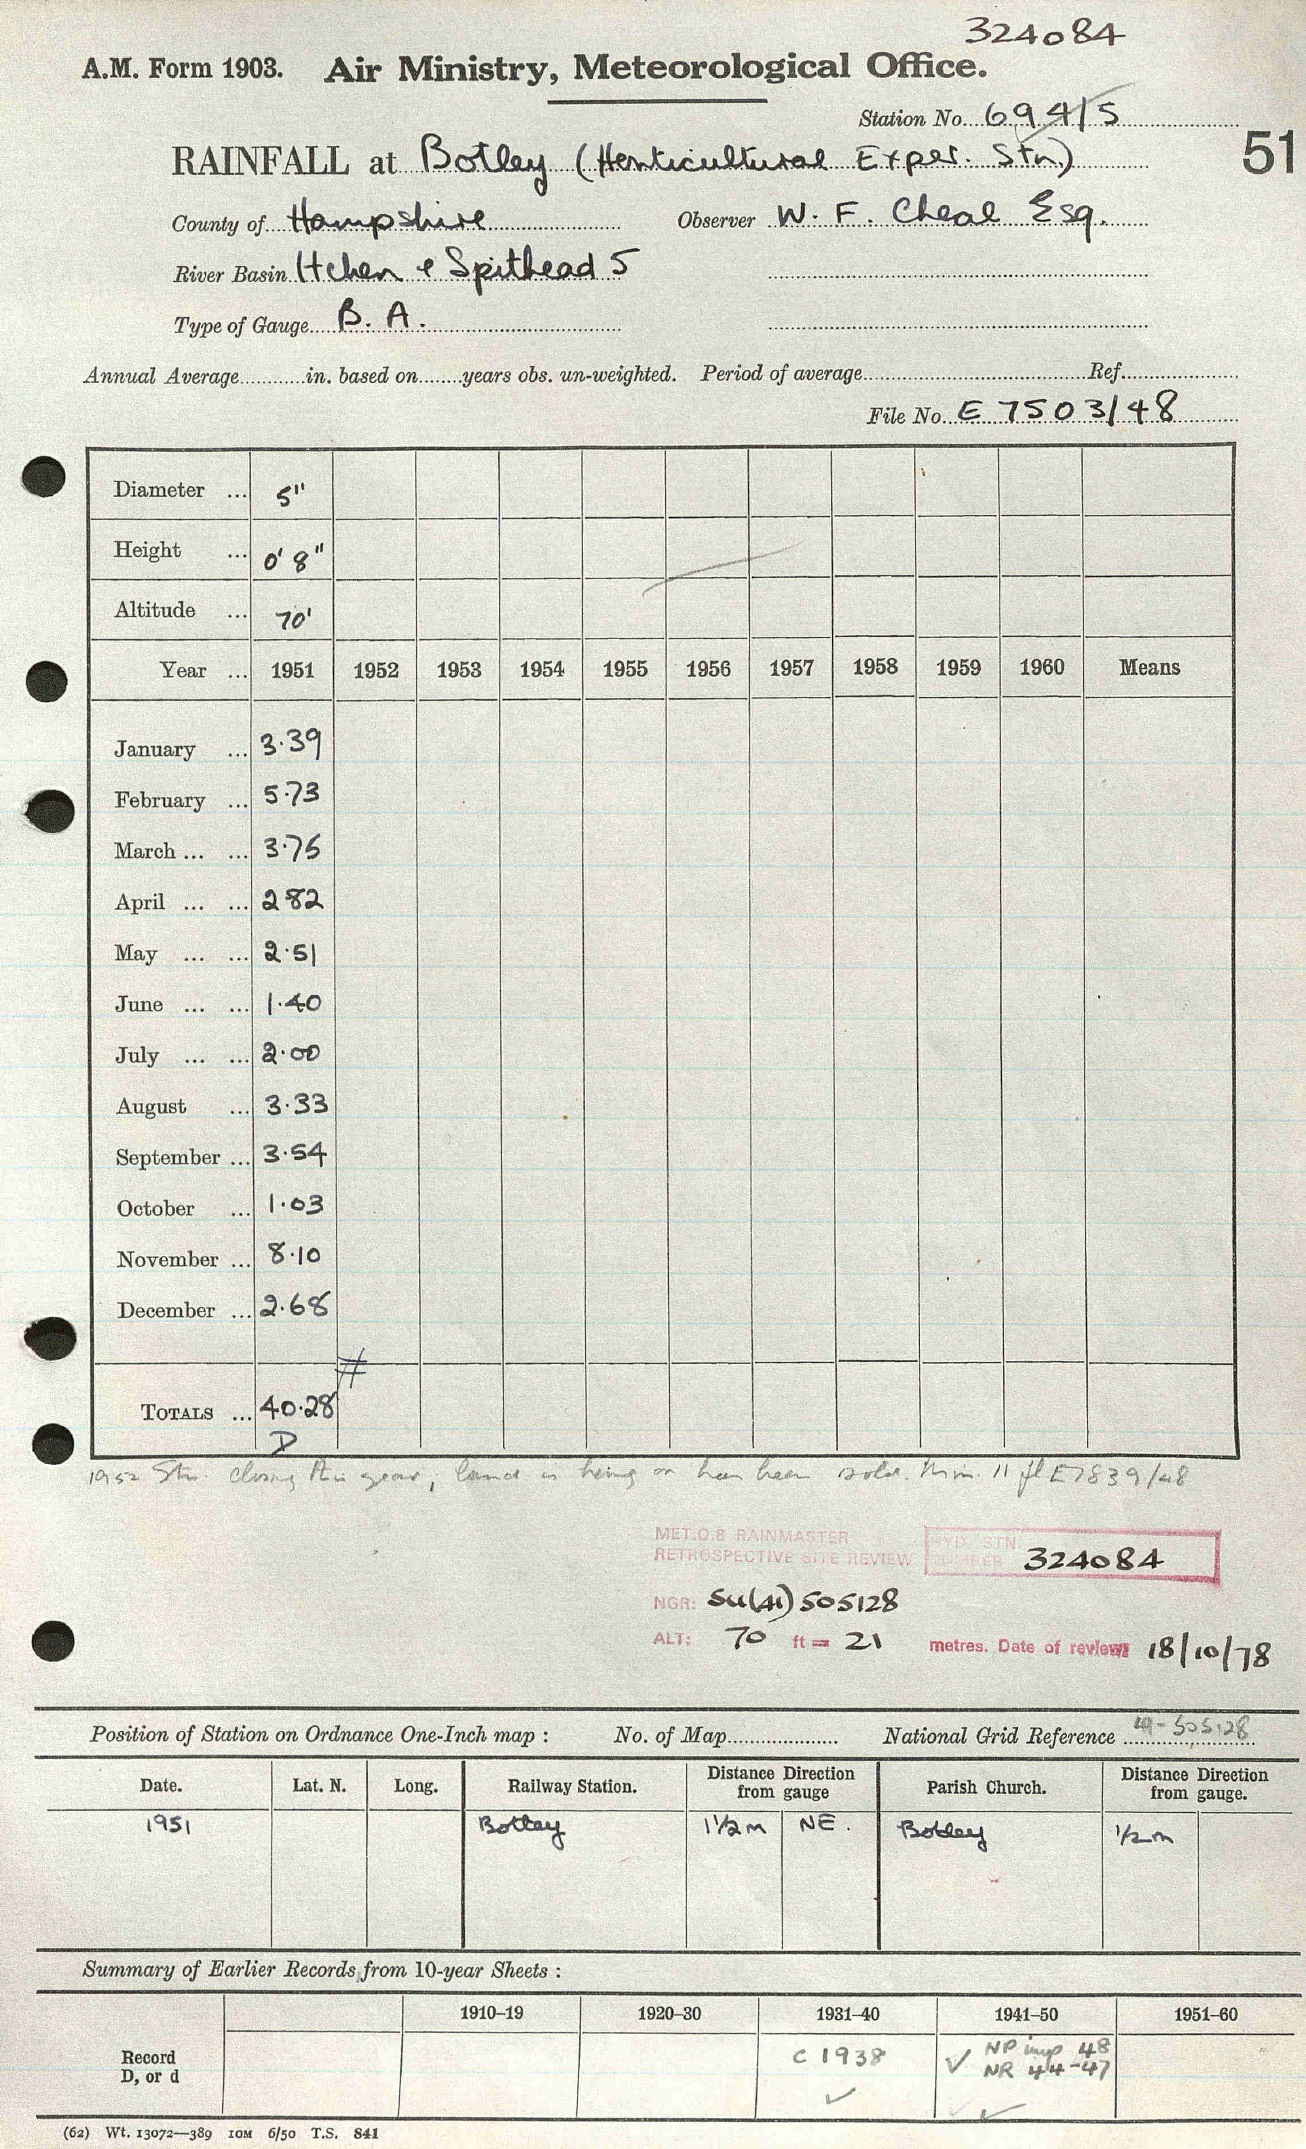 324084
A.M. Form 1903. Air Ministry, Meteorological Office.
Station No. 694/5
51
RAINFALL at Botley (Horticultural Exper. Stn)
County of Hampshire Observer W. F. Cheal Esq.
River Basin Itchen & Spithead 5
Type of Gauge B. A.
Annual Average............in. based on........years obs. un-weighted. Period of average............Ref............
File No. E 7503/48
Diameter ... 5"
Height ... 0' 8"
Altitude ... 70'
Year ... 1951 1952 1953 1954 1955 1956 1957 1958 1959 1960 Means
January ... 3·39
February ... 5·73
March ... ... 3·75
April ... ... 2 82
May ... ... 2·51
June ... ... 1·40
July ... ... 2·00
August ... 3·33
September ... 3·54
October ... 1·03
November ... 8·10
December ... 2·68
#
TOTALS ... 40·28
D
1952 Stn. closing this year, land is being or has been sold. Min. 11 fl E7839/48
MET.O.8 RAINMASTER
RETROSPECTIVE SITE REVIEW
HYD. STN. NUMBER 324084
NGR: SU(41) 505128
ALT: 70 ft = 21 metres. Date of review: 18/10/78
Position of Station on Ordnance One-Inch map : No. of Map............ National Grid Reference 41-505128
Date. Lat. N. Long. Railway Station. Distance Direction from gauge Parish Church. Distance Direction from gauge.
1951 Botley 1½ m NE. Botley ½ m
Summary of Earlier Records from 10-year Sheets :
1910–19 1920–30 1931–40 1941–50 1951–60
Record D, or d c 1938 ✓ ✓ NP imp 48
NR 44-47 ✓
(62) Wt. 13072—389 10M 6/50 T.S. 841